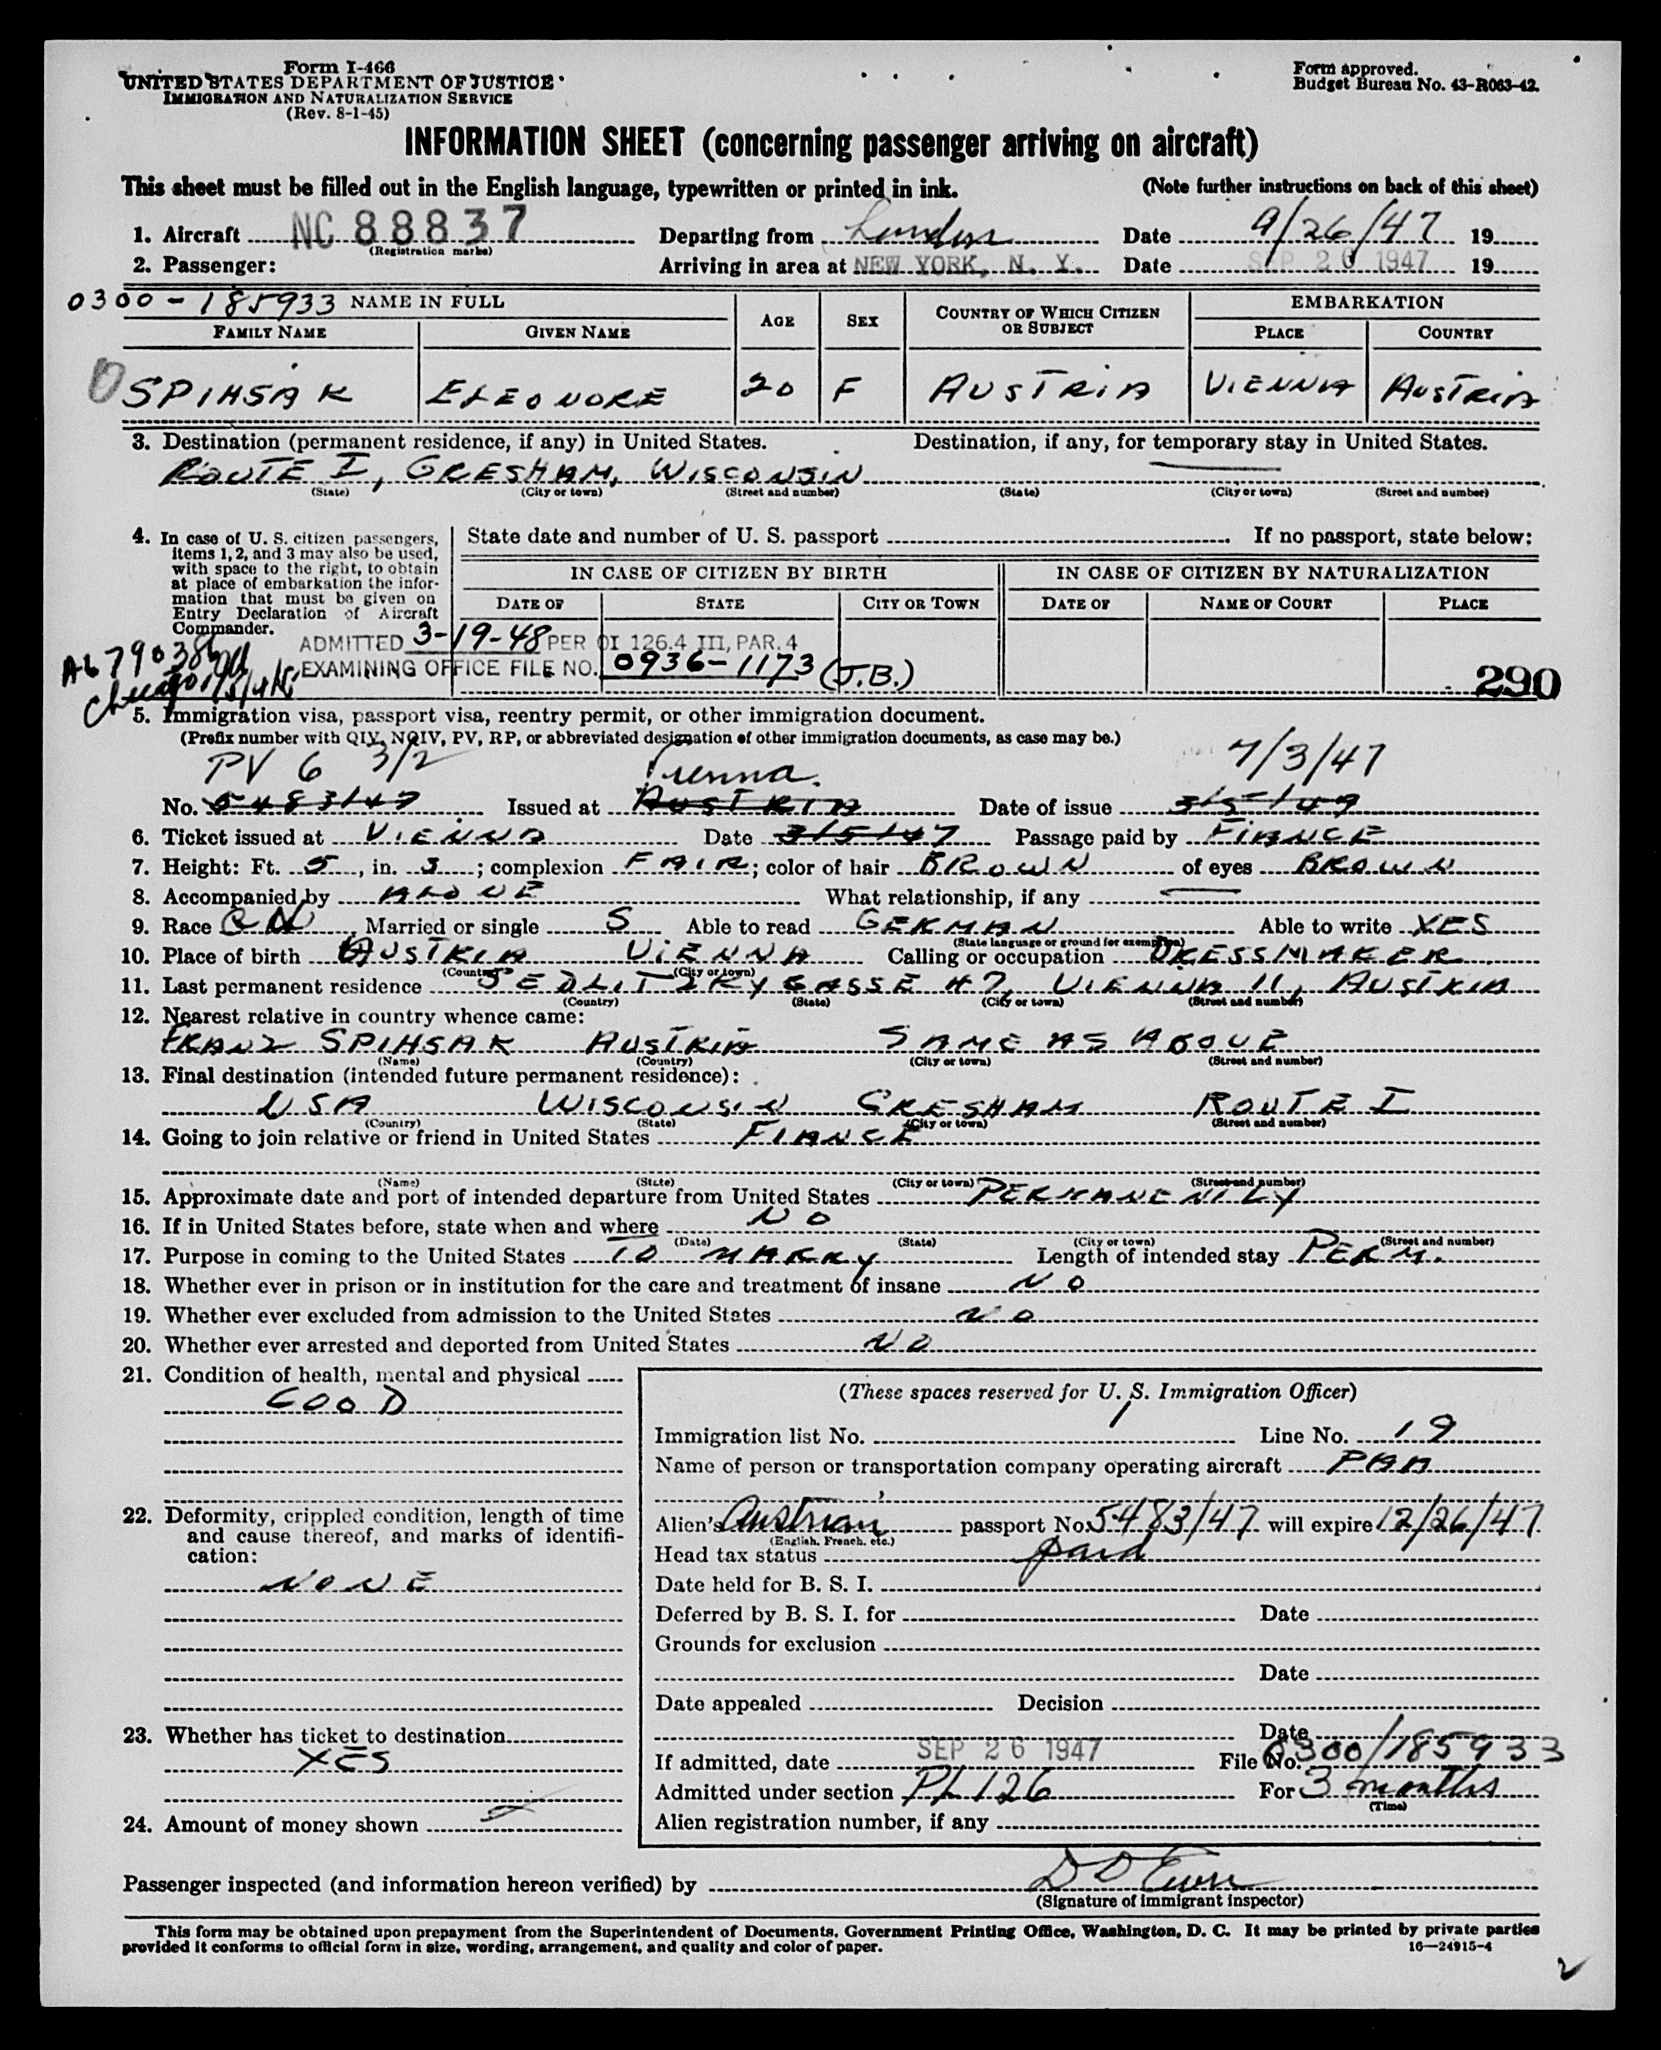 Form I-466
UNITED STATES DEPARTMENT OF JUSTICE
IMMIGRATION AND NATURALIZATION SERVICE
(Rev. 8-1-45)
Form approved.
Budget Bureau No. 43-R063-42.
INFORMATION SHEET (concerning passenger arriving on aircraft)
This sheet must be filled out in the English language, typewritten or printed in ink. (Note further instructions on back of this sheet)
1. Aircraft NC 88837 Departing from London Date 9/26/47 19
(Registration marks)
2. Passenger: Arriving in area at NEW YORK, N. Y. Date SEP 26 1947 19
0300-185933 NAME IN FULL AGE SEX COUNTRY OF WHICH CITIZEN OR SUBJECT EMBARKATION
FAMILY NAME GIVEN NAME PLACE COUNTRY
SPIHSAK ELEONORE 20 F AUSTRIA VIENNA AUSTRIA
3. Destination (permanent residence, if any) in United States. Destination, if any, for temporary stay in United States.
ROUTE I, GRESHAM, WISCONSIN
(State) (City or town) (Street and number) (State) (City or town) (Street and number)
4. In case of U. S. citizen passengers, items 1, 2, and 3 may also be used, with space to the right, to obtain at place of embarkation the information that must be given on Entry Declaration of Aircraft Commander.
State date and number of U. S. passport If no passport, state below:
IN CASE OF CITIZEN BY BIRTH IN CASE OF CITIZEN BY NATURALIZATION
DATE OF STATE CITY OR TOWN DATE OF NAME OF COURT PLACE
ADMITTED 3-19-48 PER OI 126.4 III, PAR. 4
EXAMINING OFFICE FILE NO. 0936-1173 (J.B.)
290
5. Immigration visa, passport visa, reentry permit, or other immigration document.
(Prefix number with QIV, NQIV, PV, RP, or abbreviated designation of other immigration documents, as case may be.)
PV 6 3/2 Vienna. 7/3/47
No. 5483/47 Issued at AUSTRIA Date of issue 3/5/47
6. Ticket issued at VIENNA Date 3/5/47 Passage paid by FIANCE
7. Height: Ft. 5, in. 3; complexion FAIR; color of hair BROWN of eyes BROWN
8. Accompanied by ALONE What relationship, if any
9. Race Married or single S Able to read GERMAN Able to write YES
(State language or ground for exemption)
10. Place of birth AUSTRIA VIENNA Calling or occupation DRESSMAKER
(Country) (City or town)
11. Last permanent residence SEDLITZKYGASSE #7, VIENNA 11, AUSTRIA
(Country) (State) (City or town) (Street and number)
12. Nearest relative in country whence came:
FRANZ SPIHSAK AUSTRIA SAME AS ABOVE
(Name) (Country) (City or town) (Street and number)
13. Final destination (intended future permanent residence):
USA WISCONSIN GRESHAM ROUTE I
(Country) (State) (City or town) (Street and number)
14. Going to join relative or friend in United States FIANCE
(Name) (State) (City or town) (Street and number)
15. Approximate date and port of intended departure from United States PERMANENTLY
16. If in United States before, state when and where NO
(Date) (State) (City or town) (Street and number)
17. Purpose in coming to the United States TO MARRY Length of intended stay PERM.
18. Whether ever in prison or in institution for the care and treatment of insane NO
19. Whether ever excluded from admission to the United States NO
20. Whether ever arrested and deported from United States NO
21. Condition of health, mental and physical
GOOD
22. Deformity, crippled condition, length of time and cause thereof, and marks of identification:
NONE
23. Whether has ticket to destination
YES
24. Amount of money shown
(These spaces reserved for U. S. Immigration Officer)
Immigration list No. 1 Line No. 19
Name of person or transportation company operating aircraft PAA
Alien's Austrian passport No. 5483/47 will expire 12/26/47
(English, French, etc.)
Head tax status paid
Date held for B. S. I.
Deferred by B. S. I. for Date
Grounds for exclusion
Date
Date appealed Decision
Date
If admitted, date SEP 26 1947 File No. 0300/185933
Admitted under section PL 126 For 3 months
(Time)
Alien registration number, if any
Passenger inspected (and information hereon verified) by
(Signature of immigrant inspector)
This form may be obtained upon prepayment from the Superintendent of Documents, Government Printing Office, Washington, D. C. It may be printed by private parties
provided it conforms to official form in size, wording, arrangement, and quality and color of paper. 16—24915-4